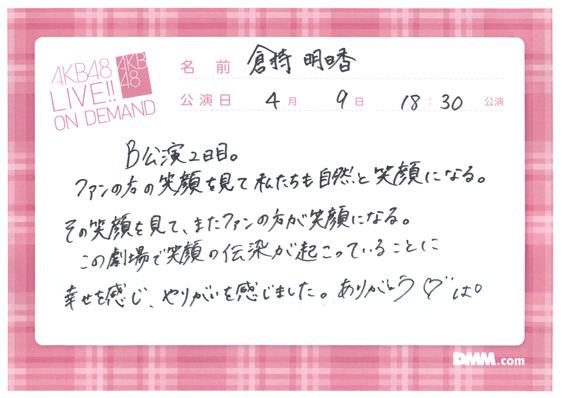 AKB48
LIVE!!
ON DEMAND
AKB
48
名前 倉持 明日香
公演日 4月 9日 18:30 公演
B公演2日目。
ファンの方の笑顔を見て私たちも自然と笑顔になる。
その笑顔を見て、またファンの方が笑顔になる。
この劇場で笑顔の伝染が起こっていることに
幸せを感じ、やりがいを感じました。ありがとう♡
DMM.com